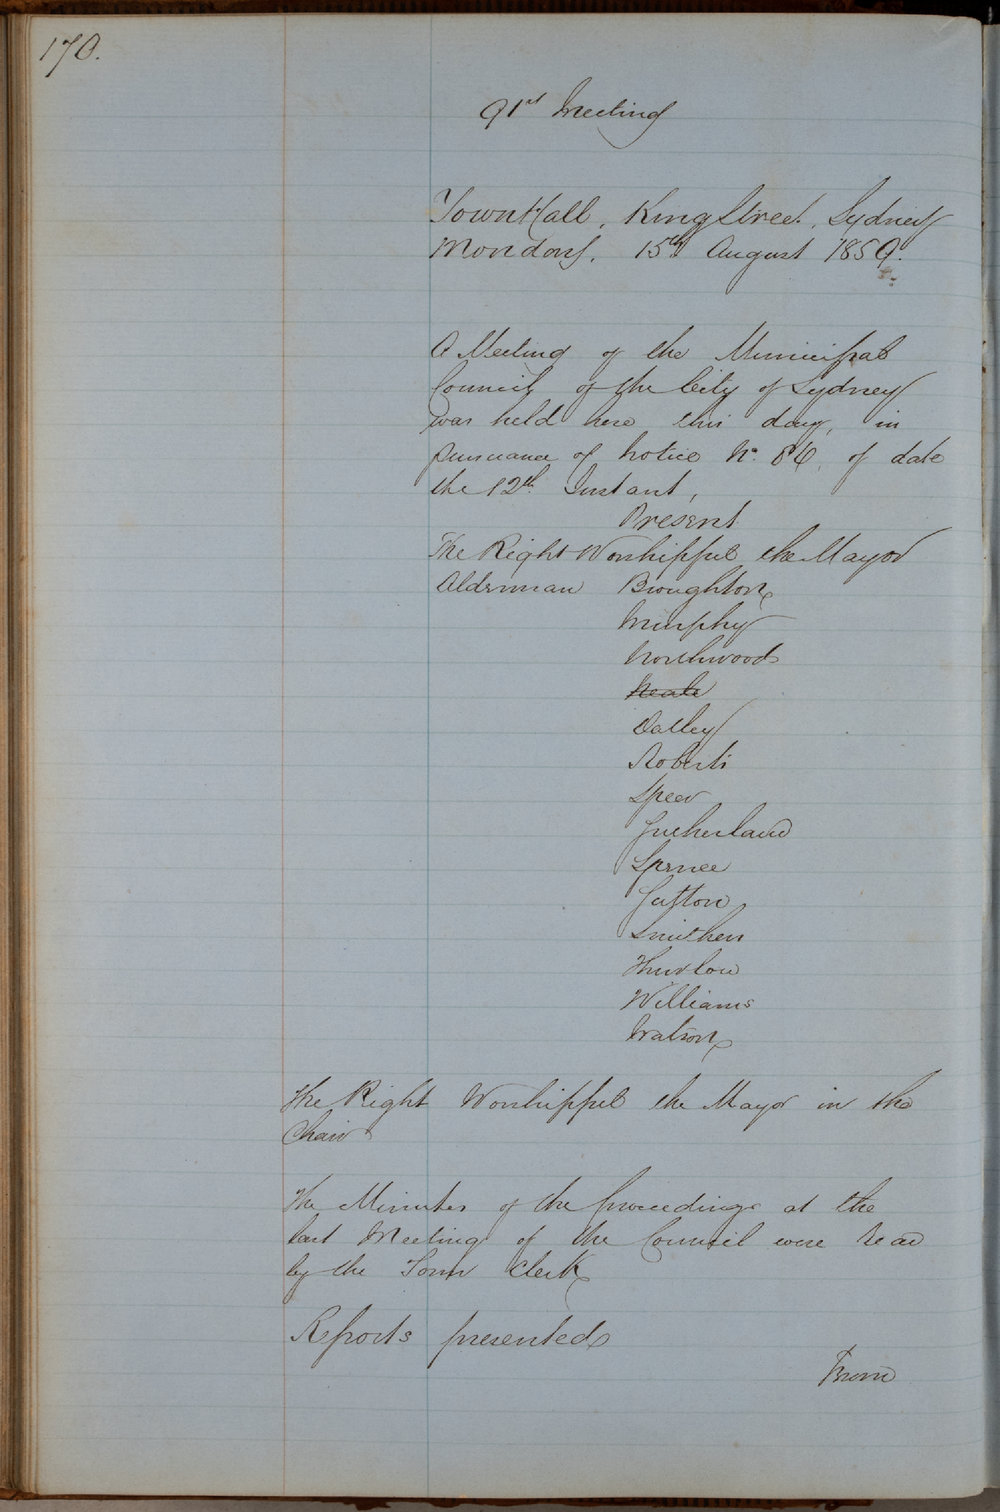 170.
91st Meeting
Town Hall, King Street, Sydney
Monday, 15th August 1859.
A Meeting of the Municipal
Council of the City of Sydney
was held here this day, in
pursuance of notice No. 86, of date
the 12th Instant,
Present
The Right Worshipful the Mayor
Alderman Broughton
Murphy
Northwood
Neale
Dalley
Roberts
Speer
Sutherland
Spence
Sutton
Smithers
Thurlow
Williams
Watson
The Right Worshipful the Mayor in the
Chair
The Minutes of the proceedings at the
last Meeting of the Council were read
by the Town Clerk
Reports presented
From